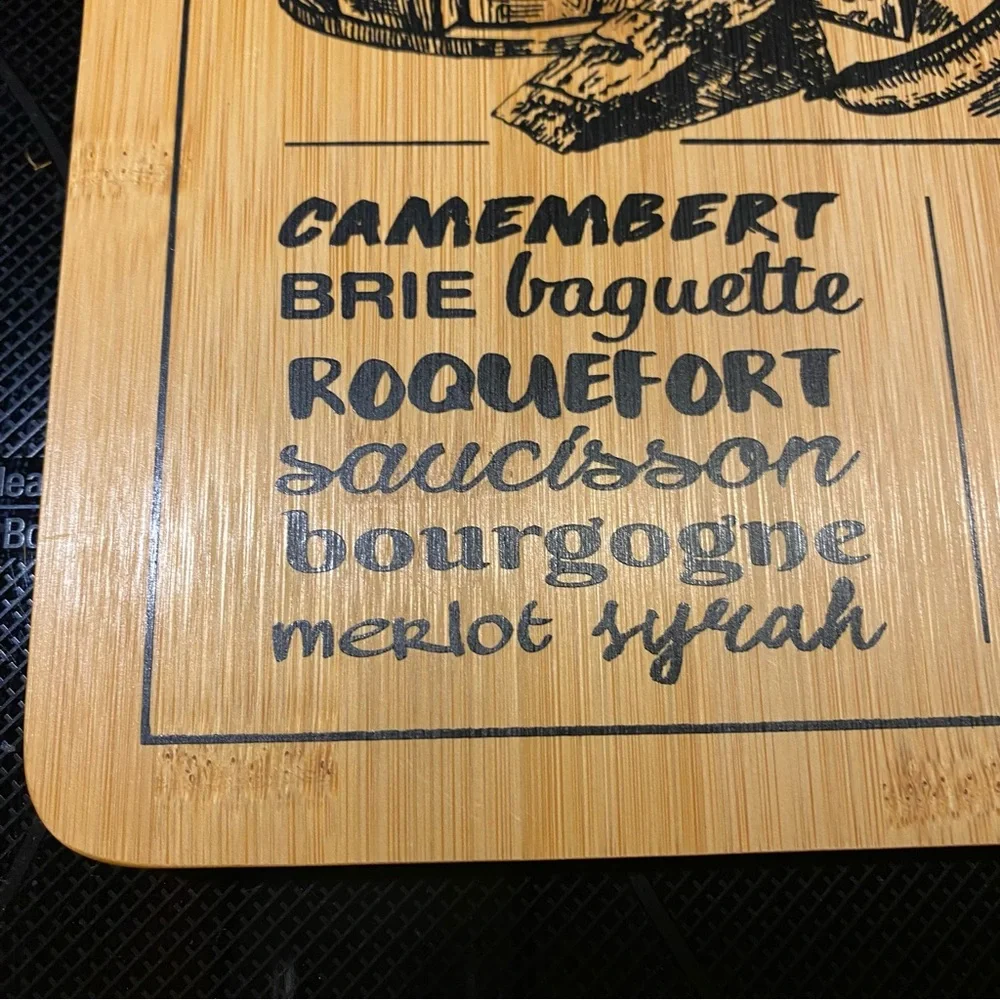 CAMEMBERT
BRIE baguette
ROQUEFORT
saucisson
bourgogne
merlot syrah